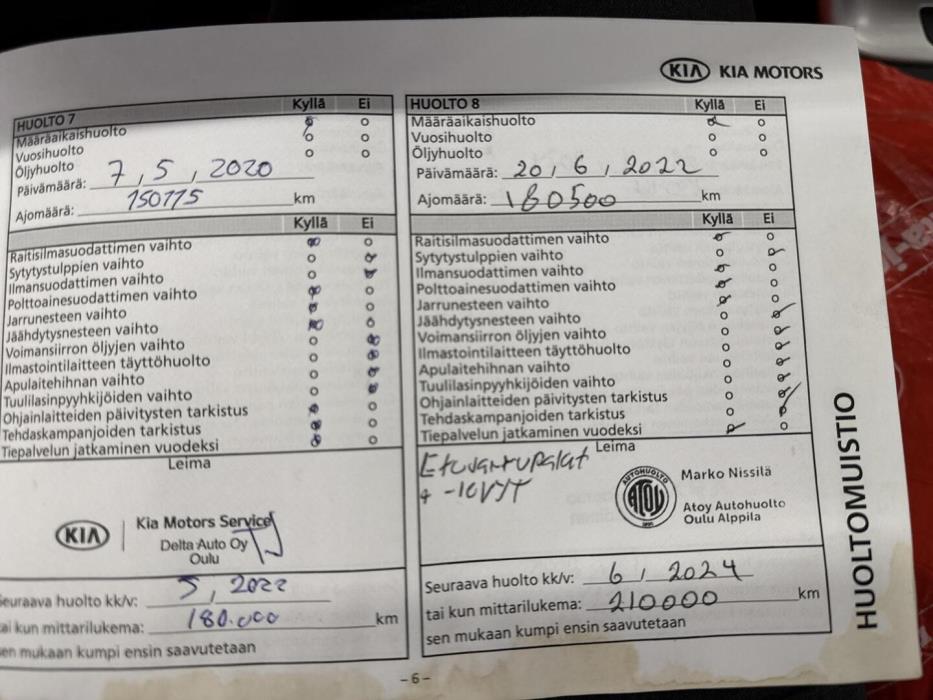 KIA KIA MOTORS
HUOLTO 7 Kyllä Ei
Määräaikaishuolto
Vuosihuolto
Öljyhuolto
Päivämäärä: 7, 5, 2020
Ajomäärä: 150775 km
Kyllä Ei
Raitisilmasuodattimen vaihto
Sytytystulppien vaihto
Ilmansuodattimen vaihto
Polttoainesuodattimen vaihto
Jarrunesteen vaihto
Jäähdytysnesteen vaihto
Voimansiirron öljyjen vaihto
Ilmastointilaitteen täyttöhuolto
Apulaitehihnan vaihto
Tuulilasinpyyhkijöiden vaihto
Ohjainlaitteiden päivitysten tarkistus
Tehdaskampanjoiden tarkistus
Tiepalvelun jatkaminen vuodeksi
Leima
KIA Kia Motors Service
Delta Auto Oy
Oulu
Seuraava huolto kk/v: 5, 2022
tai kun mittarilukema: 180.000 km
sen mukaan kumpi ensin saavutetaan
HUOLTO 8 Kyllä Ei
Määräaikaishuolto
Vuosihuolto
Öljyhuolto
Päivämäärä: 20, 6, 2022
Ajomäärä: 180500 km
Kyllä Ei
Raitisilmasuodattimen vaihto
Sytytystulppien vaihto
Ilmansuodattimen vaihto
Polttoainesuodattimen vaihto
Jarrunesteen vaihto
Jäähdytysnesteen vaihto
Voimansiirron öljyjen vaihto
Ilmastointilaitteen täyttöhuolto
Apulaitehihnan vaihto
Tuulilasinpyyhkijöiden vaihto
Ohjainlaitteiden päivitysten tarkistus
Tehdaskampanjoiden tarkistus
Tiepalvelun jatkaminen vuodeksi
Leima
Etujarrupalat
+ -levyt
AUTOHUOLTO
ATOY
Marko Nissilä
Atoy Autohuolto
Oulu Alppila
Seuraava huolto kk/v: 6, 2024
tai kun mittarilukema: 210000 km
sen mukaan kumpi ensin saavutetaan
HUOLTOMUISTIO
-6-